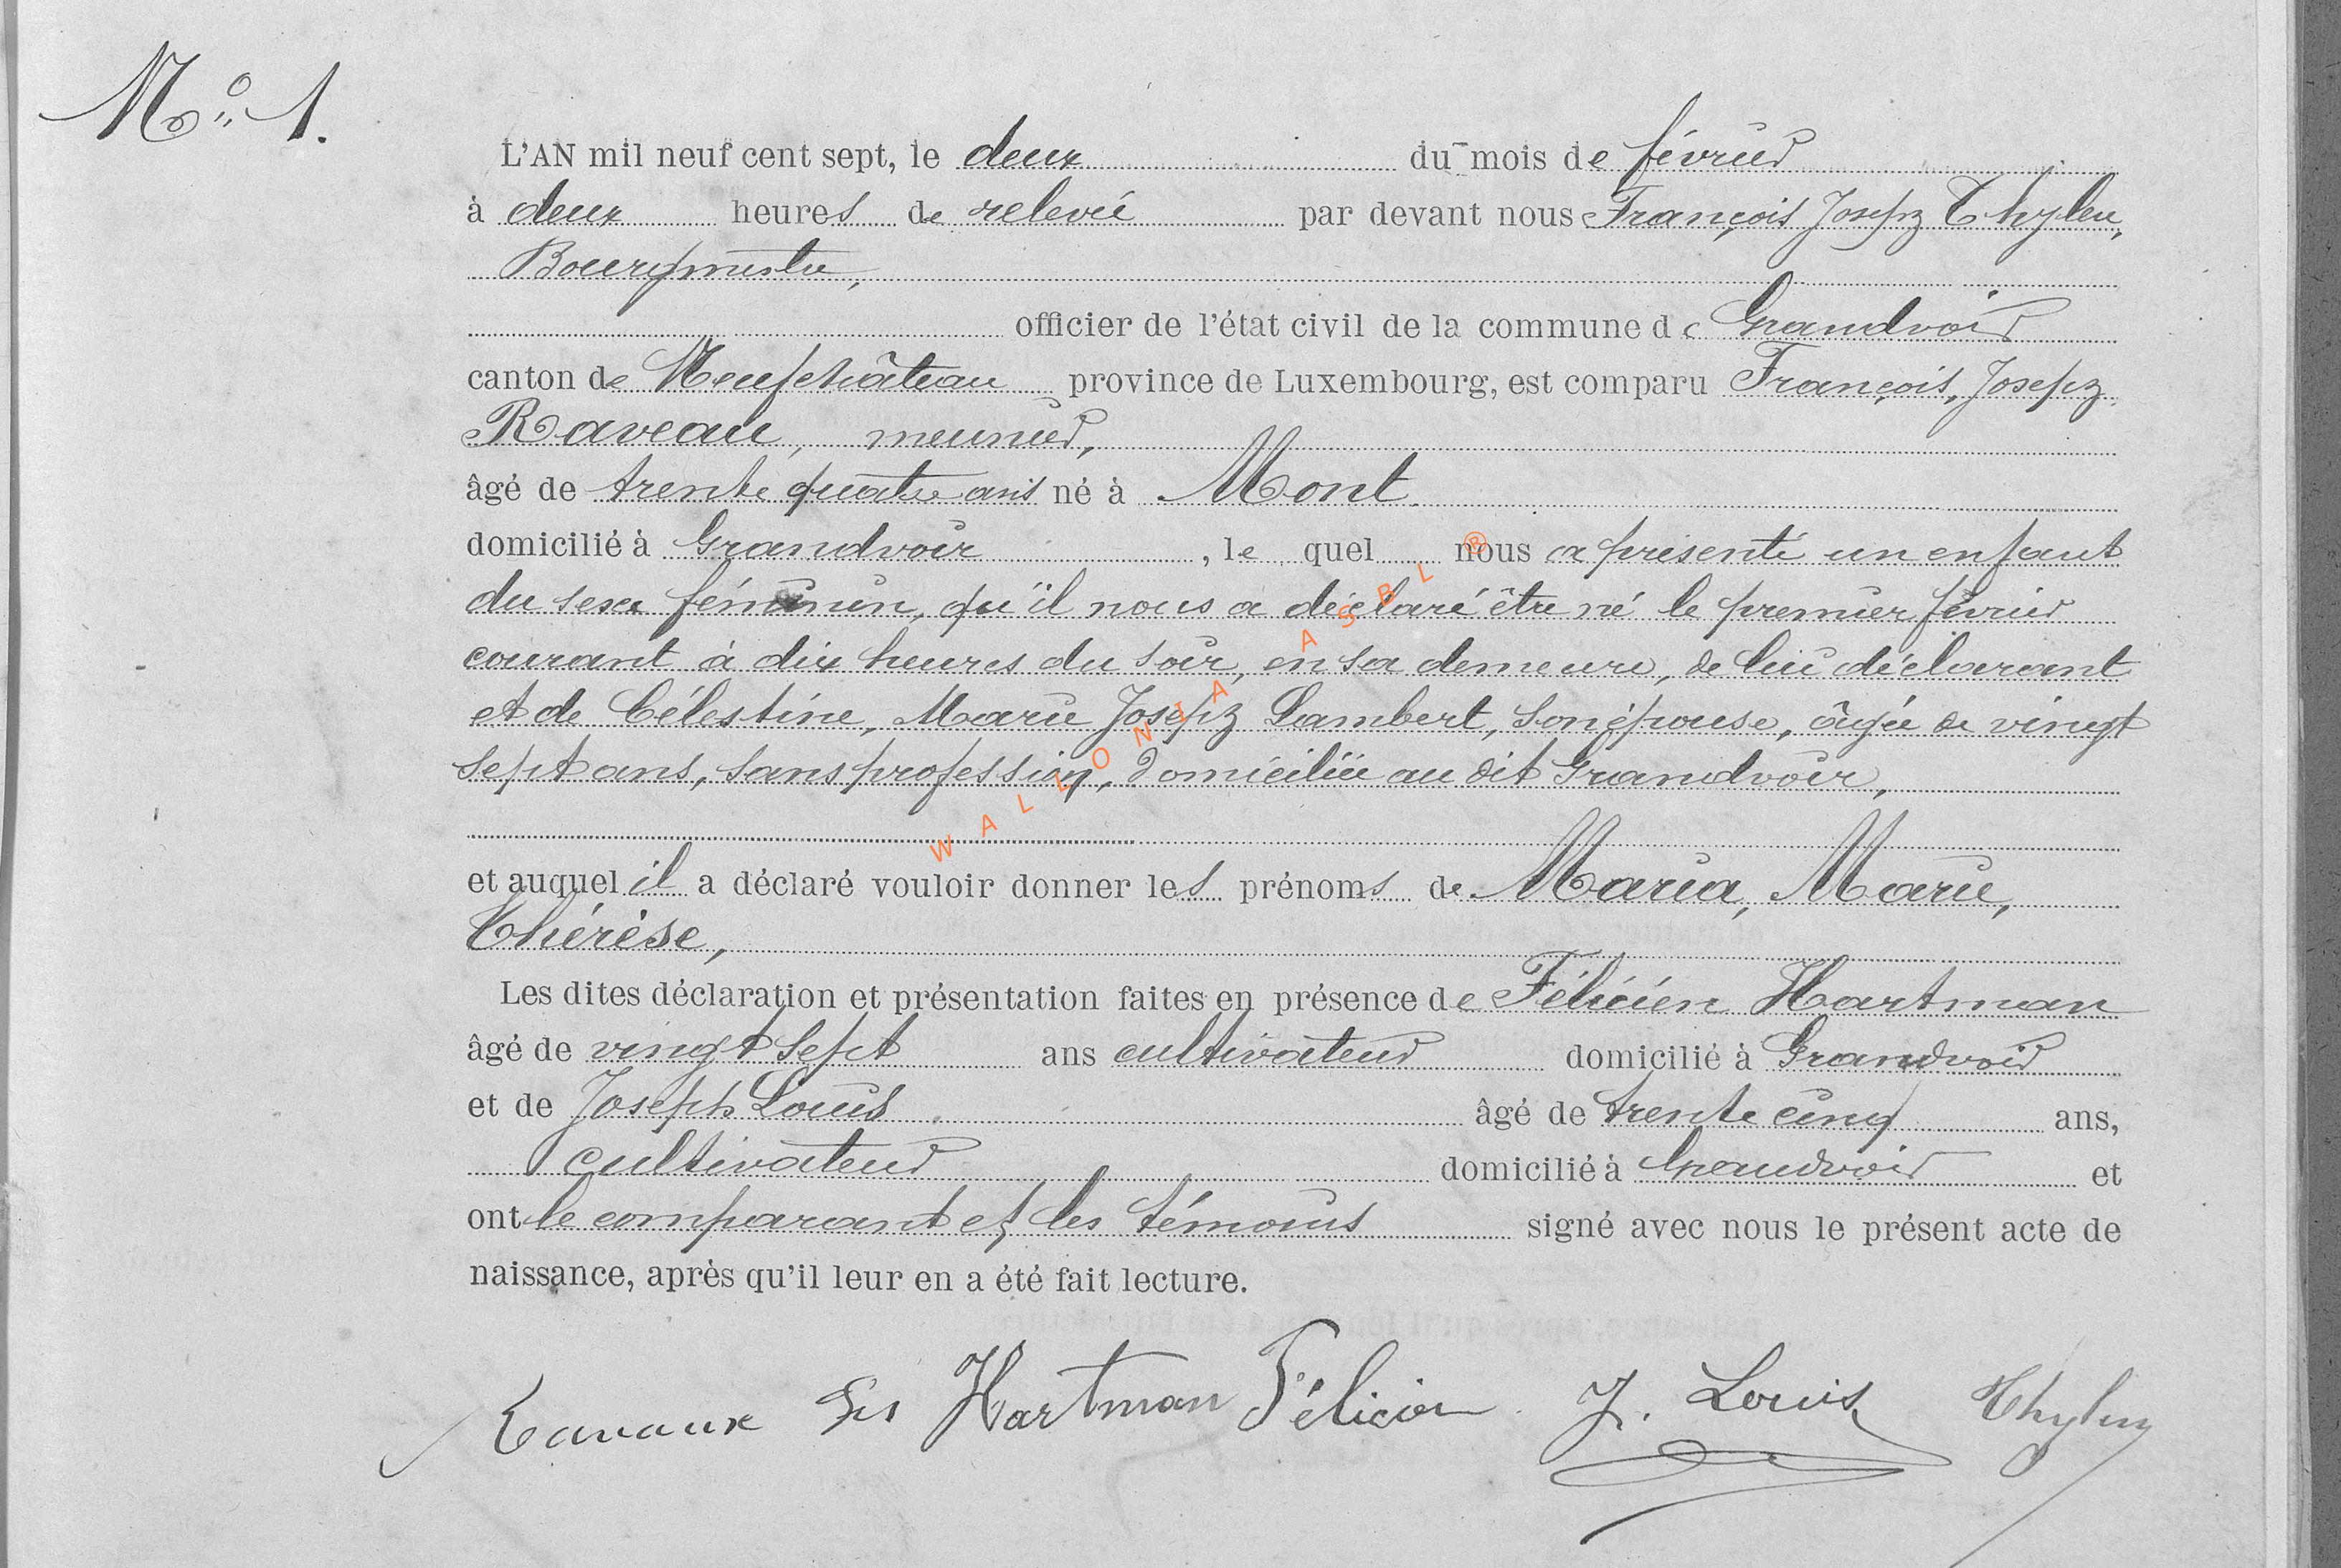 No 1.
L'AN mil neuf cent sept, le deux du mois de février
à deux heures de relevée par devant nous François Joseph Thylen,
Bourgmestre,
officier de l'état civil de la commune de Grandvoir
canton de Neufchâteau province de Luxembourg, est comparu François, Joseph
Raveau, meunier,
âgé de trente quatre ans né à Mont
domicilié à Grandvoir, le quel nous a présenté un enfant
du sexe féminin, qu'il nous a déclaré être né le premier février
courant à dix heures du soir, en sa demeure, de lui déclarant
et de Célestine, Marie Joseph Lambert, son épouse, âgée de vingt
sept ans, sans profession, domiciliée au dit Grandvoir,
et auquel il a déclaré vouloir donner les prénoms de Maria, Marie,
Thérèse,
Les dites déclaration et présentation faites en présence de Félicien Hartman
âgé de vingt sept ans cultivateur domicilié à Grandvoir
et de Joseph Louis âgé de trente cinq ans,
cultivateur domicilié à Grandvoir et
ont le comparant et les témoins signé avec nous le présent acte de
naissance, après qu'il leur en a été fait lecture.
Hartman Félicien J. Louis Thylen
WALLONIA ASBL ®